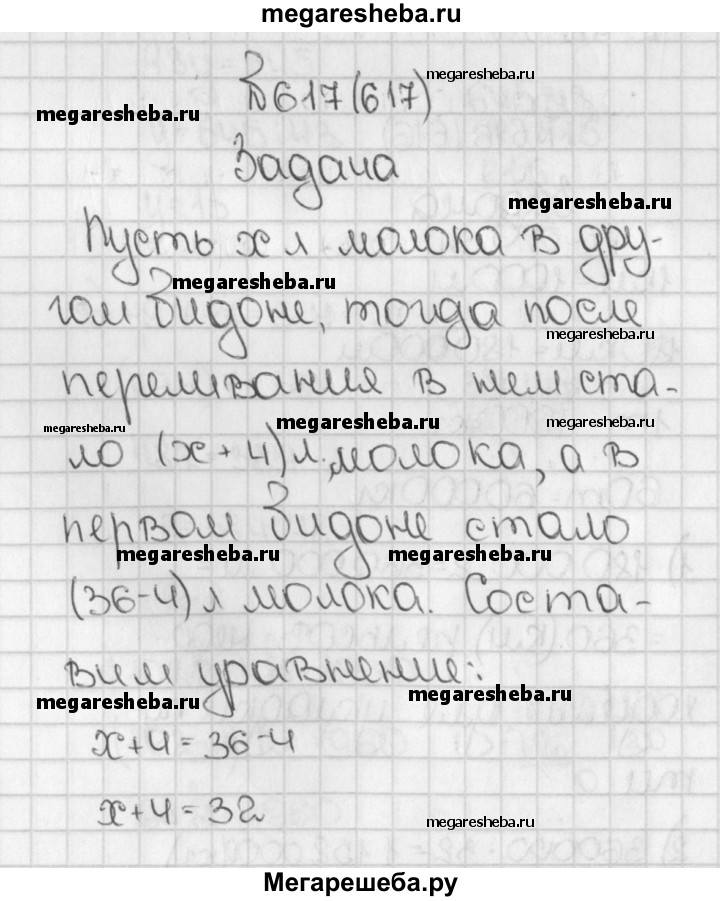 megaresheba.ru
№617(617)
megaresheba.ru
megaresheba.ru
Задача
megaresheba.ru
Пусть х л молока в дру-
megaresheba.ru
гом бидоне, тогда после
megaresheba.ru
переливания в нем ста-
megaresheba.ru
megaresheba.ru
megaresheba.ru
ло (х+4) л молока, а в
первом бидоне стало
megaresheba.ru
megaresheba.ru
(36-4) л молока. Соста-
вим уравнение:
megaresheba.ru
megaresheba.ru
х+4=36-4
х+4=32
megaresheba.ru
Мегарешеба.ру